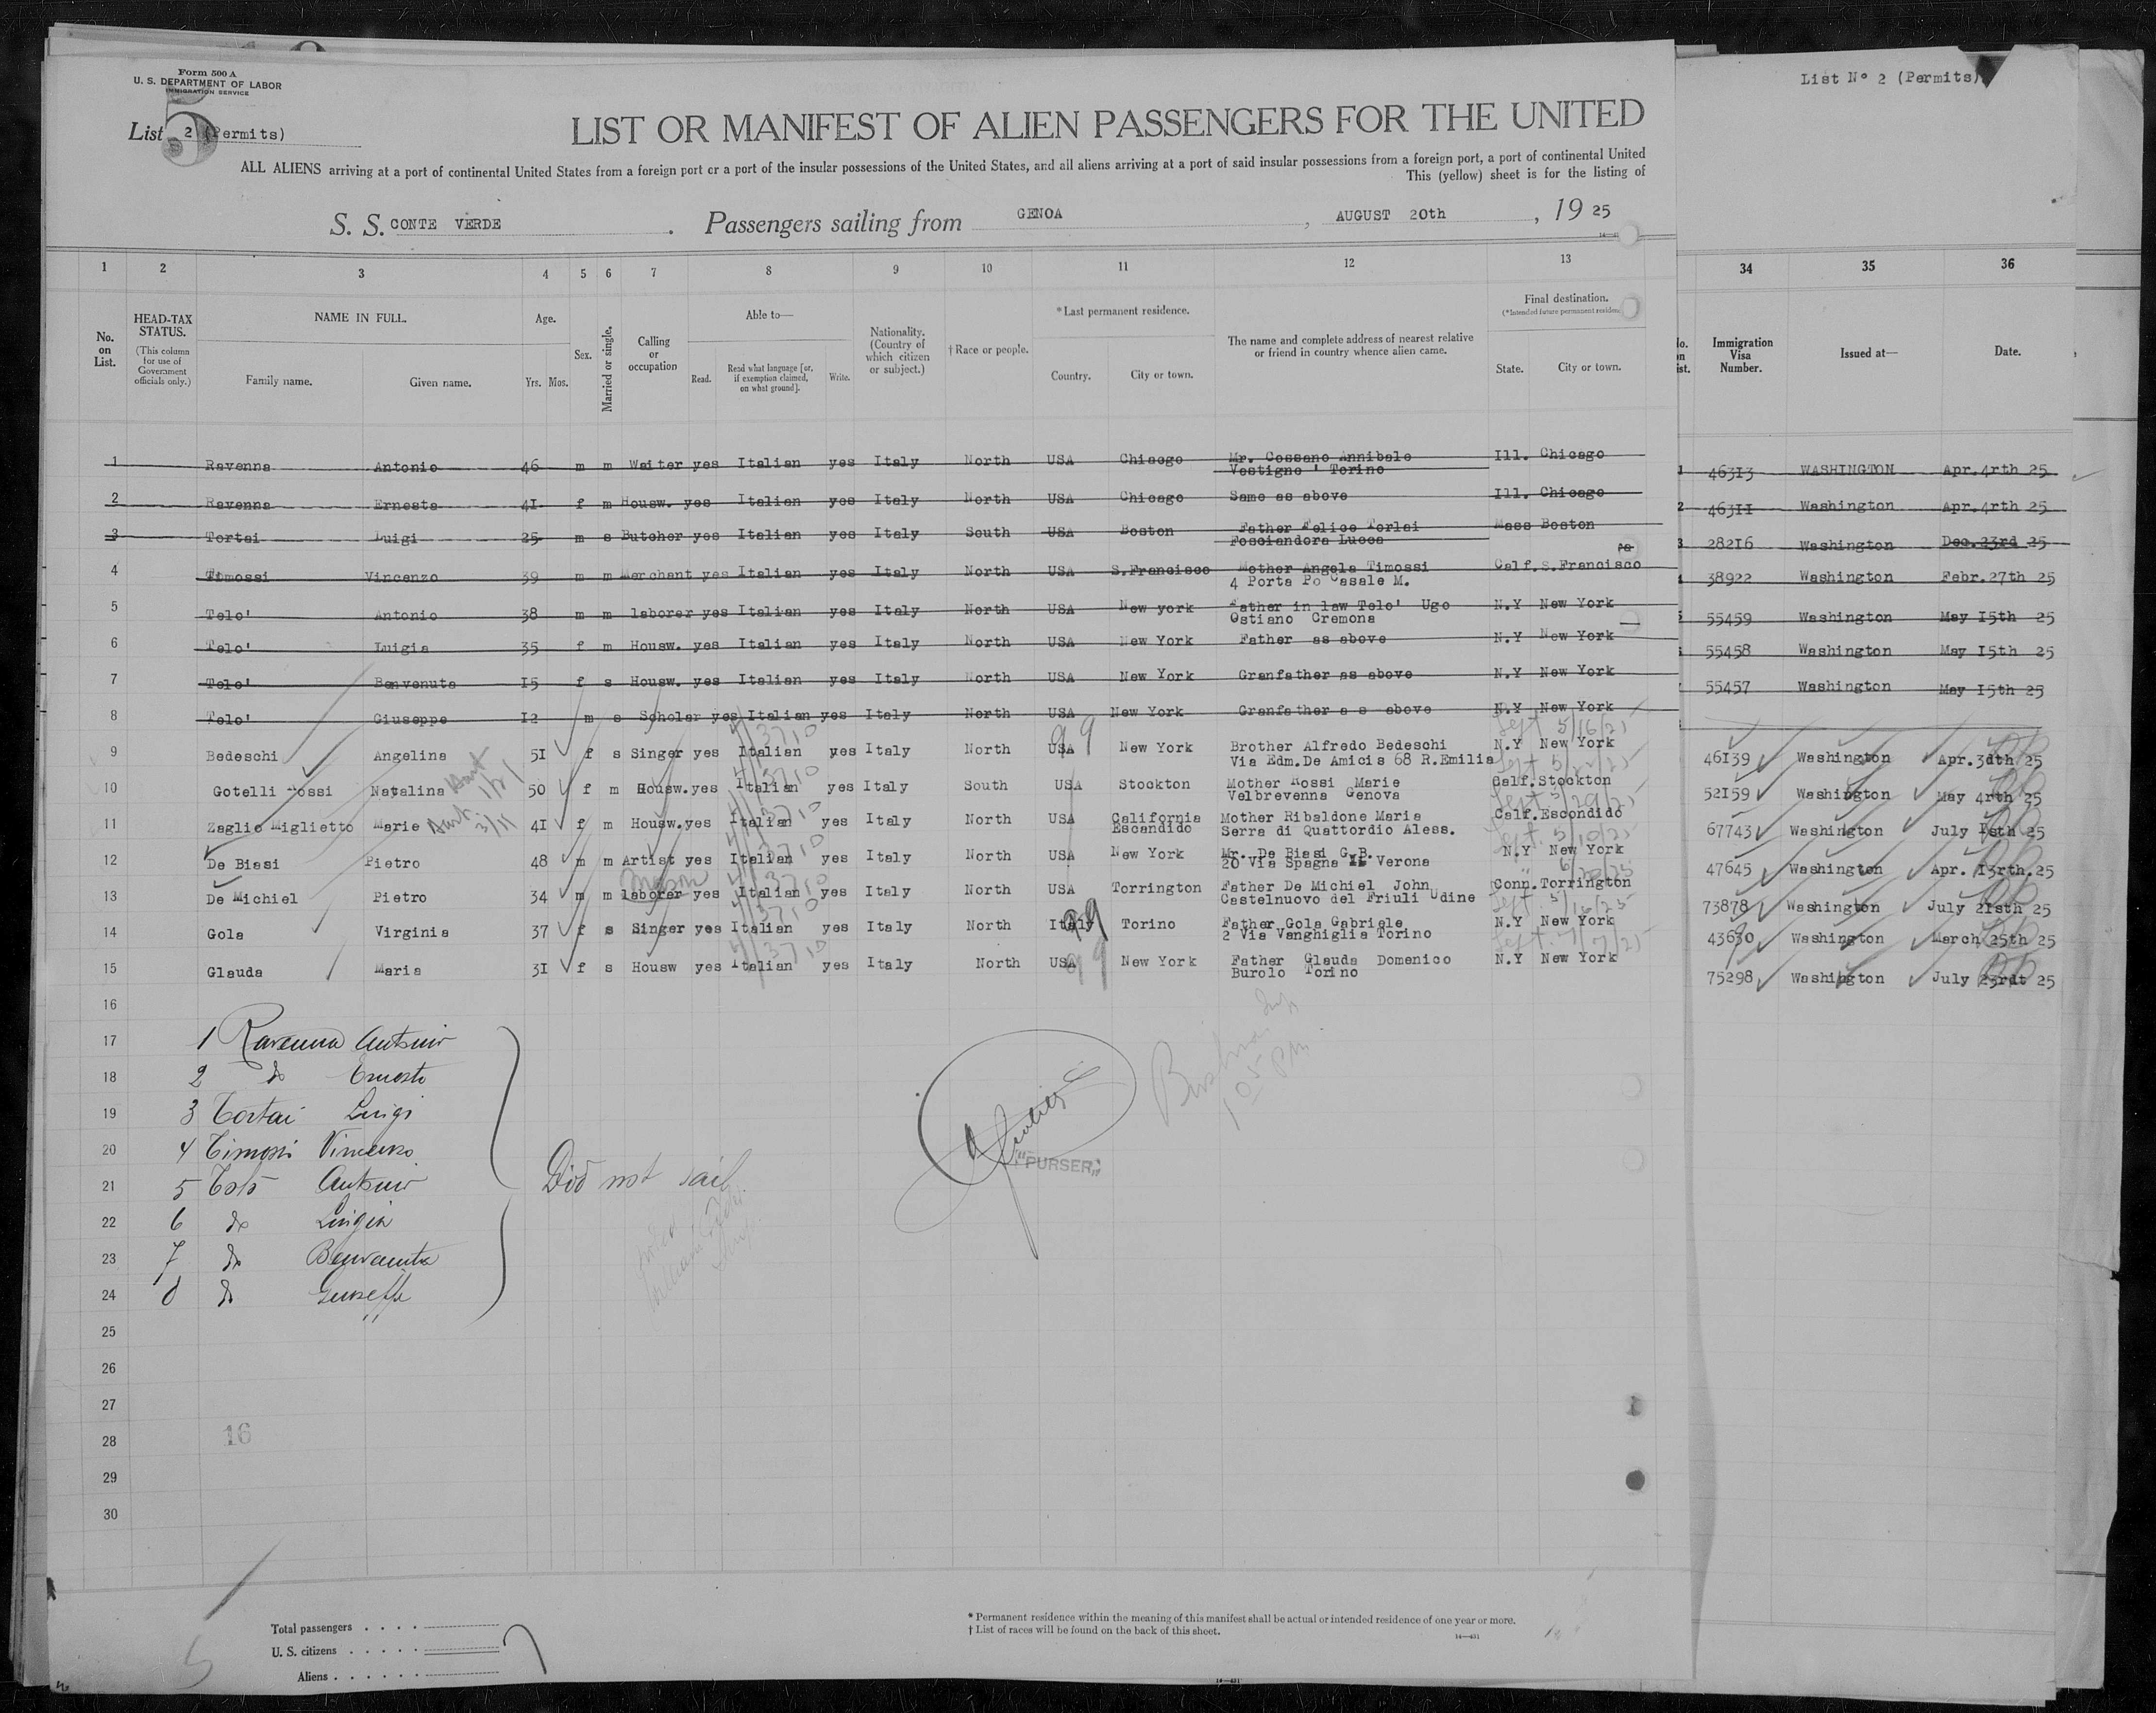 Form 500 A
U. S. DEPARTMENT OF LABOR
IMMIGRATION SERVICE
List 2 (Permits)
5
List Nº 2 (Permits)
LIST OR MANIFEST OF ALIEN PASSENGERS FOR THE UNITED
ALL ALIENS arriving at a port of continental United States from a foreign port or a port of the insular possessions of the United States, and all aliens arriving at a port of said insular possessions from a foreign port, a port of continental United
This (yellow) sheet is for the listing of
S. S. CONTE VERDE . Passengers sailing from GENOA , AUGUST 20th , 19 25
1 2 3 4 5 6 7 8 9 10 11 12 13 34 35 36
No. on List.
HEAD-TAX STATUS.
(This column for use of Government officials only.)
NAME IN FULL.
Family name. Given name.
Age.
Yrs. Mos.
Sex.
Married or single.
Calling or occupation
Able to—
Read. Read what language [or, if exemption claimed, on what ground]. Write.
Nationality. (Country of which citizen or subject.)
† Race or people.
* Last permanent residence.
Country. City or town.
The name and complete address of nearest relative or friend in country whence alien came.
Final destination.
(* Intended future permanent residen
State. City or town.
Immigration Visa Number.
Issued at—
Date.
1 Ravenna Antonio 46 m m Waiter yes Italian yes Italy North USA Chicago Mr. Cossano Annibale Ill. Chicago 46313 WASHINGTON Apr.4rth 25
Vestigne ' Torino
2 Ravenna Ernesta 41 f m Housw. yes Italian yes Italy North USA Chicago Same as above Ill. Chicago 46311 Washington Apr.4rth 25
3 Tortai Luigi 25 m s Butcher yes Italian yes Italy South USA Boston Father Felice Torlai Mass Boston 28216 Washington Dec.23rd 25
Fosciandora Lucca
4 Timossi Vincenzo 39 m m Merchant yes Italian yes Italy North USA S.Francisco Mother Angela Timossi Calf.S.Francisco 38922 Washington Febr.27th 25
4 Porta Po Casale M.
5 Telo' Antonio 38 m m laborer yes Italian yes Italy North USA New york Father in law Telo' Ugo N.Y New York 55459 Washington May 15th 25
Ostiano Cremona
6 Telo' Luigia 35 f m Housw. yes Italian yes Italy North USA New York Father as above N.Y New York 55458 Washington May 15th 25
7 Telo' Benvenuta 15 f s Housw. yes Italian yes Italy North USA New York Granfather as above N.Y New York 55457 Washington May 15th 25
8 Telo' Giuseppe 12 m s Scholar yes Italian yes Italy North USA New York Granfather a s above N.Y New York
9 Bedeschi Angelina 51 f s Singer yes Italian yes Italy North USA New York Brother Alfredo Bedeschi N.Y New York 46139 Washington Apr.3dth 25
Via Edm.De Amicis 68 R.Emilia
10 Gotelli Rossi Natalina 50 f m Housw.yes Italian yes Italy South USA Stockton Mother Rossi Marie Calf.Stockton 52159 Washington May 4rth 25
Velbrevenna Genova
11 Zaglio Miglietto Marie 41 f m Housw.yes Italian yes Italy North USA California Escandido Mother Ribaldone Maria Calf.Escondido 67743 Washington July 1sth 25
Serra di Quattordio Aless.
12 De Biasi Pietro 48 m m Artist yes Italian yes Italy North USA New York Mr. De Biasi G.B. N.Y New York 47645 Washington Apr. 13rth.25
20 Via Spagna Verona
13 De Michiel Pietro 34 m m laborer yes Italian yes Italy North USA Torrington Father De Michiel John Conn.Torrington 73878 Washington July 21sth 25
mason
Castelnuovo del Friuli Udine
14 Gola Virginia 37 f s Singer yes Italian yes Italy North Italy Torino Father Gola Gabriele N.Y New York 43630 Washington March 25th 25
2 Via Vanghiglia Torino
15 Glauda Maria 31 f s Housw yes Italian yes Italy North USA New York Father Glauda Domenico N.Y New York 75298 Washington July 23rdt 25
Burolo Torino
16
17 1 Ravenna Antonio
18 2 do Ernesta
19 3 Tortai Luigi
20 4 Timossi Vincenzo
21 5 Telo Antonio
Did not sail
"PURSER"
22 6 do Luigia
23 7 do Benvenuta
24 8 do Giuseppe
25
26
27
28
16
29
30
Total passengers
U. S. citizens
Aliens
* Permanent residence within the meaning of this manifest shall be actual or intended residence of one year or more.
† List of races will be found on the back of this sheet.
14—431